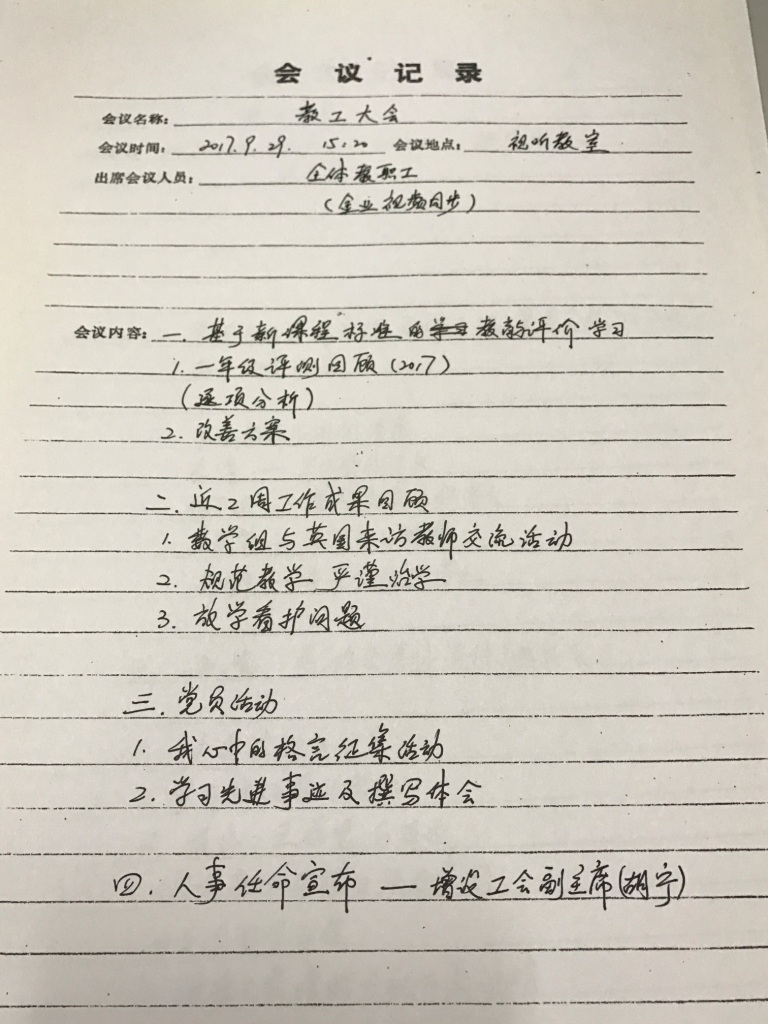 会议记录
会议名称: 教工大会
会议时间: 2017.9.29. 15:20 会议地点: 视听教室
出席会议人员: 全体教职工
(金业视频同步)
会议内容: 一. 基于新课程标准的教学评价学习
1. 一年级评测回顾(2017)
(逐项分析)
2. 改善方案
二. 近2周工作成果回顾
1. 数学组与英国来访教师交流活动
2. 规范教学 严谨治学
3. 放学看护问题
三. 党员活动
1. 我心中的格言征集活动
2. 学习先进事迹及撰写体会
四. 人事任命宣布 — 增设工会副主席(胡宁)